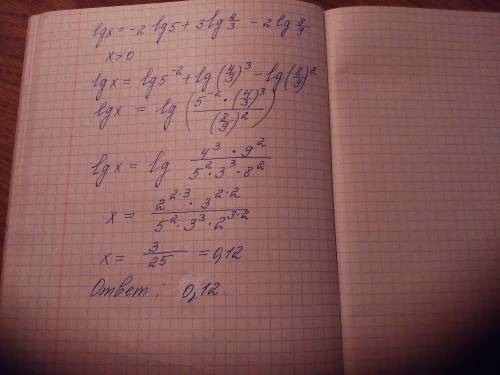 lgx = -2 lg5 + 3lg 4/3 - 2lg 8/9
x>0
lgx = lg5^-2 + lg(4/3)^3 - lg(8/9)^2
lgx = lg(5^-2 · (4/3)^3 / (8/9)^2)
lgx = lg 4^3 · 9^2 / 5^2 · 3^3 · 8^2
x = 2^2·3 · 3^2·2 / 5^2 · 3^3 · 2^3·2
x = 3/25 = 0,12
Ответ: 0,12.